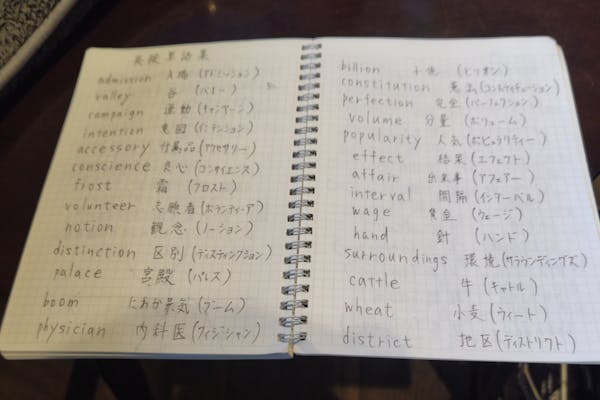 英検単語集
admission 入場 (アドミッション)
valley 谷 (バリー)
campaign 運動 (キャンペーン)
intention 意図 (インテンション)
accessory 付属品 (アクセサリー)
conscience 良心 (コンサイエンス)
frost 霜 (フロスト)
volunteer 志願者 (ボランティーア)
notion 観念 (ノーション)
distinction 区別 (ディスティンクション)
palace 宮殿 (パレス)
boom にわか景気 (ブーム)
physician 内科医 (フィジーシャン)
billion 十億 (ビリオン)
constitution 憲法 (コンスティチューション)
perfection 完全 (パーフェクション)
volume 分量 (ボリューム)
popularity 人気 (ポピュラリティー)
effect 結果 (エフェクト)
affair 出来事 (アフェアー)
interval 間隔 (インターベル)
wage 賃金 (ウェージ)
hand 針 (ハンド)
surroundings 環境 (サラウンディングズ)
cattle 牛 (キャトル)
wheat 小麦 (ウィート)
district 地区 (ディストリクト)